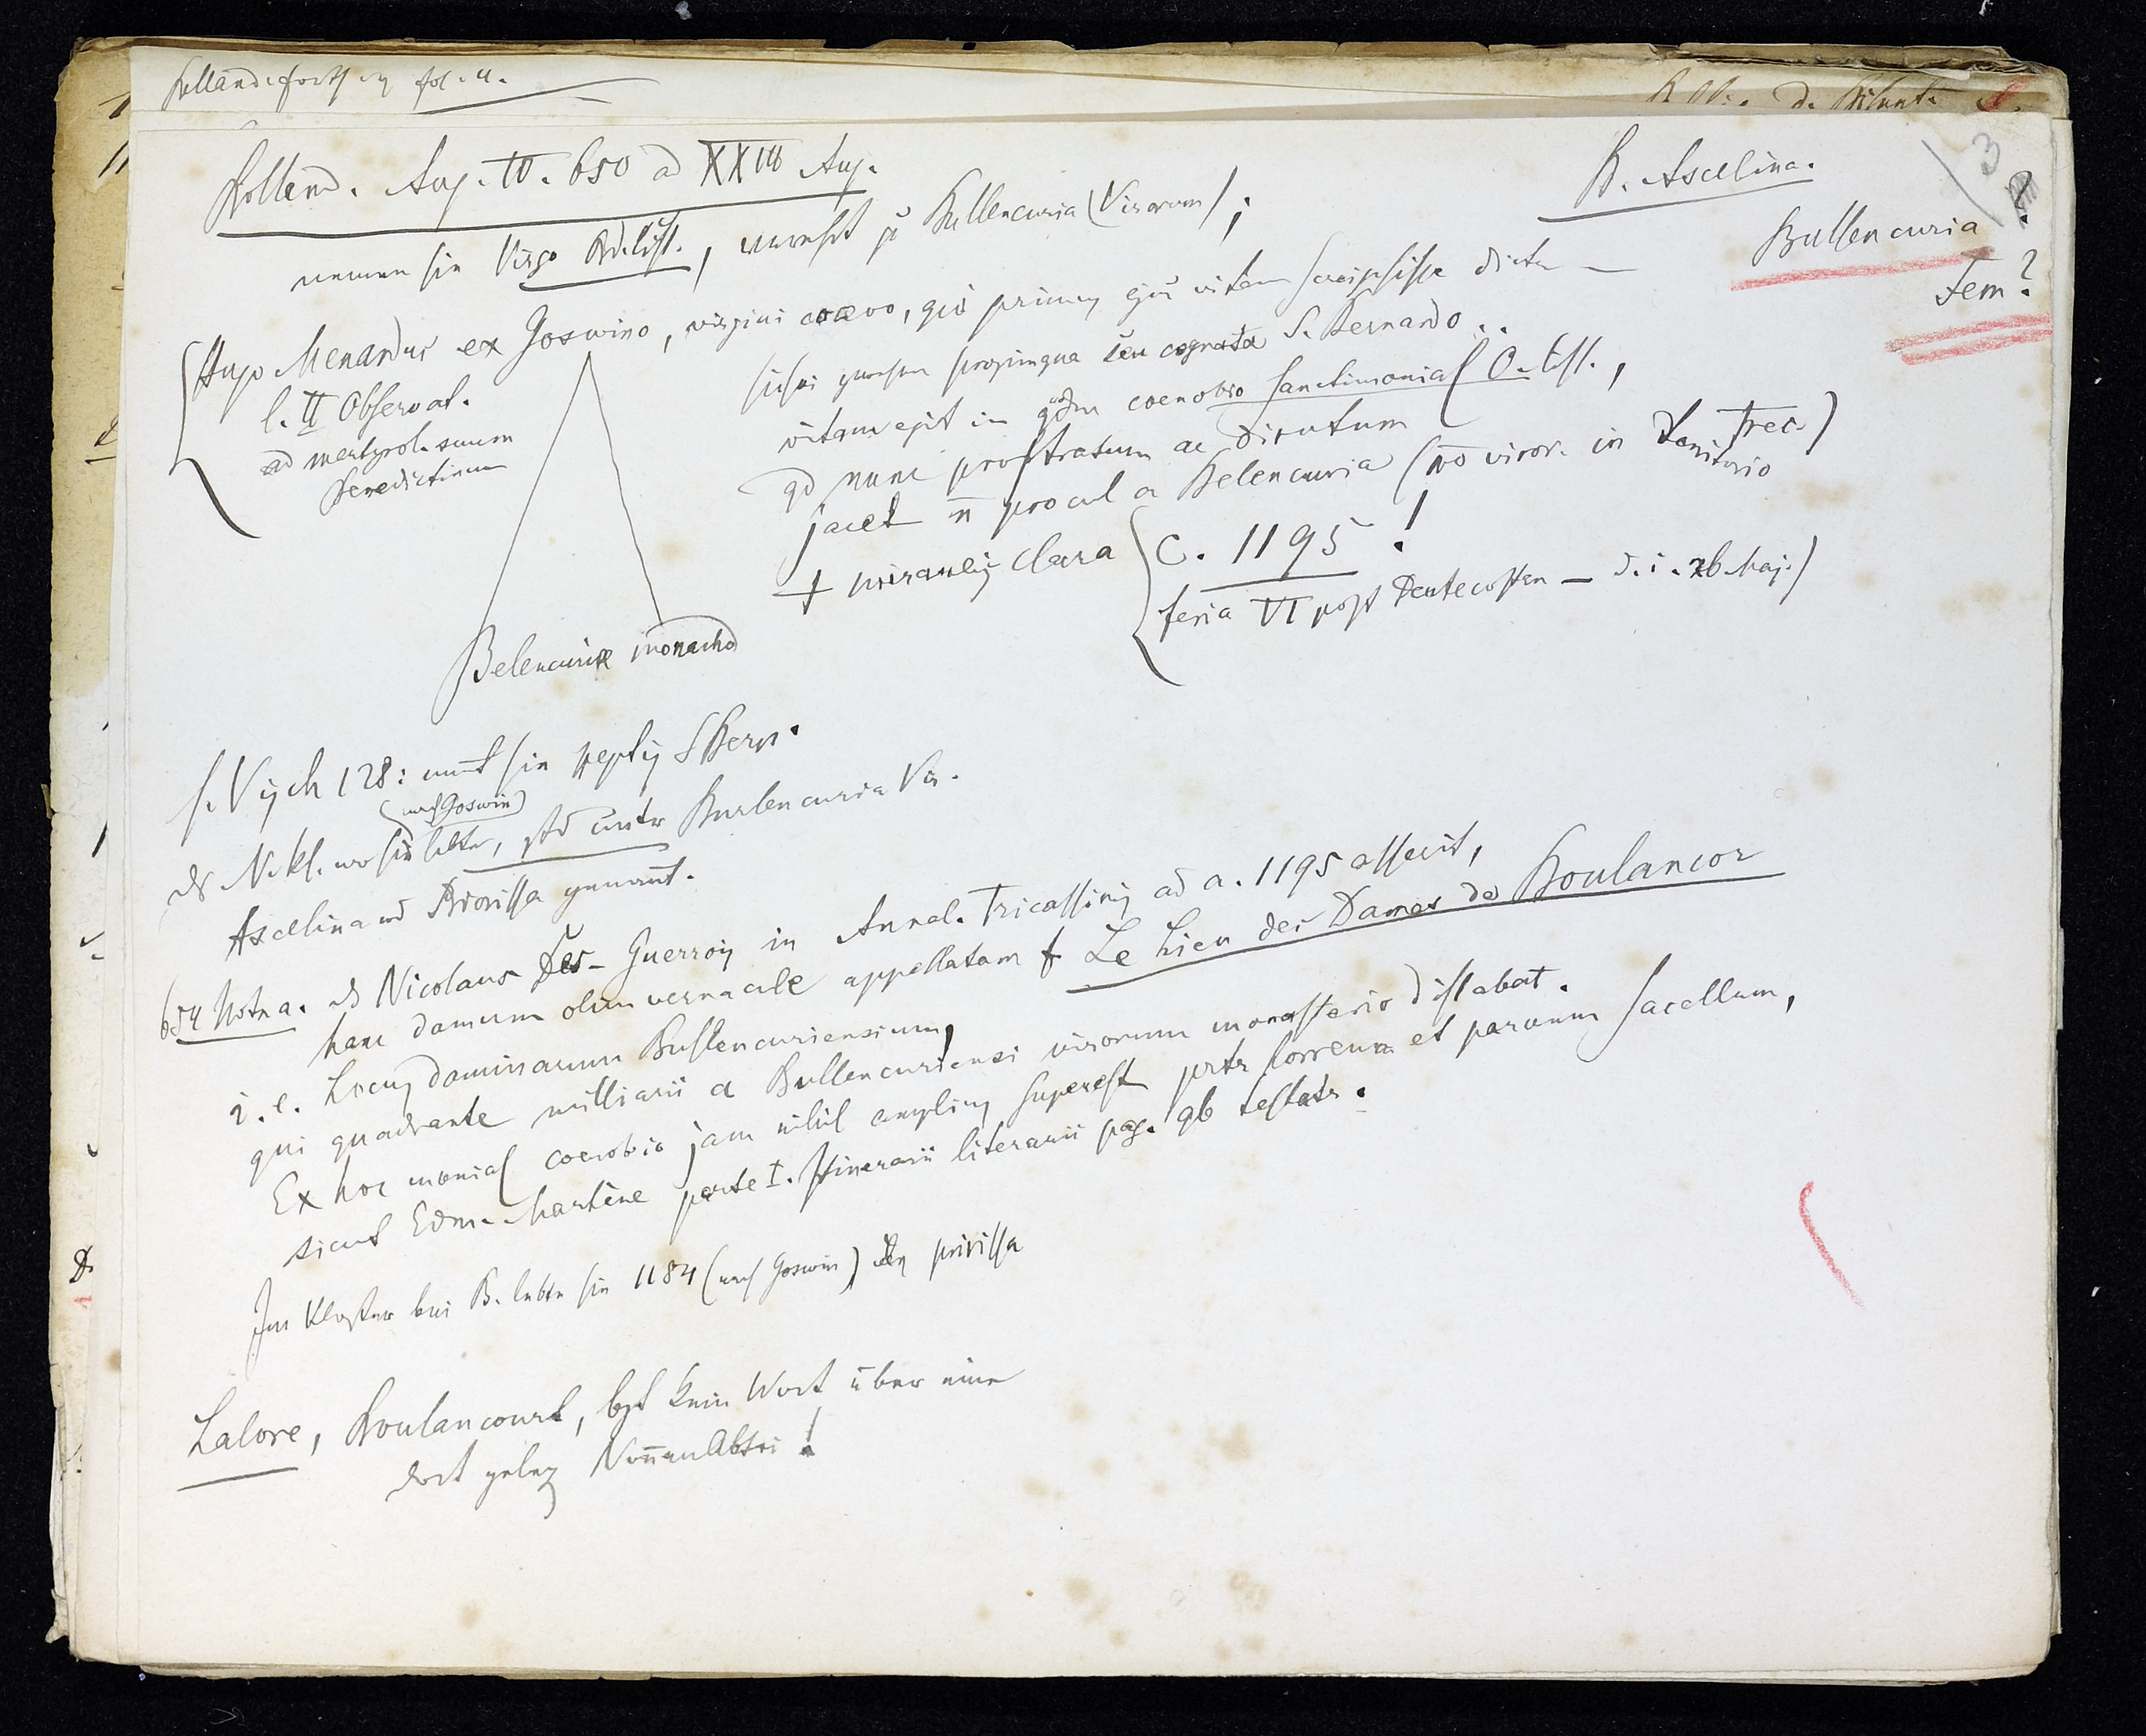 Bolland. Aug. IV. 650 ad XXIII Aug.
B. Ascelina.
3
Bullencuria ?
Fem?
nennen sie Virgo Ord. Cist., verehrt zu Bullencuria (Virorum);
Hugo Menardus ex Goswino, virgini coaevo, qui primus ejus vitam scripsisse dicitur —
l. II Observat.
ad martyrol. suum
Benedictinum
Belencuriae monacho
propinqua seu cognata S. Bernardo..
vitam egit in coenobio sanctimonial O. Cist.,
qd nunc prostratum ac dirutum
jacet n procul a Belencuria (no viror. in territorio Trec.)
† miraculis clara
C. 1195!
feria VI post Pentecosten — d. i. 26 Maj.)
128: nennt sie neptis S Bern.
(nach Goswin)
ds N.kl. wo sie lebte, stand unter Burlencuria Vir.
Ascelina wd Priorissa genannt.
654 Nota a. ds Nicolaus Des-Guerrois in Annal. Tricassinis ad a. 1195 asserit,
hanc domum olim vernacule appellatam f Le Lieu des Dames de Boulancor
i. e. Locus dominarum Bullencuriensium,
qui quadrante milliarii a Bullencuriensi virorum monasterio distabat.
Ex hoc monial coenobio jam nihil amplius superest prtr horreum et parvum sacellum,
sicut Edm. Martène parte I. Itinerarii literarii pag. 96 testatr.
Im Kloster bei B. lebte sie 1184 (nach Goswin) priorissa
Lalore, Boulancourt, hat kein Wort über eine
dort geleg Nonnenabtei!